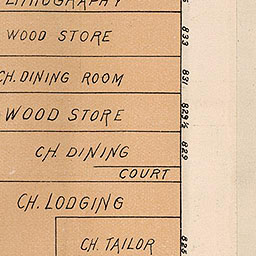 LITHOGRAPHY
WOOD STORE
833
CH. DINING ROOM
831
WOOD STORE
829½
CH. DINING
829
COURT
CH. LODGING
CH. TAILOR
825